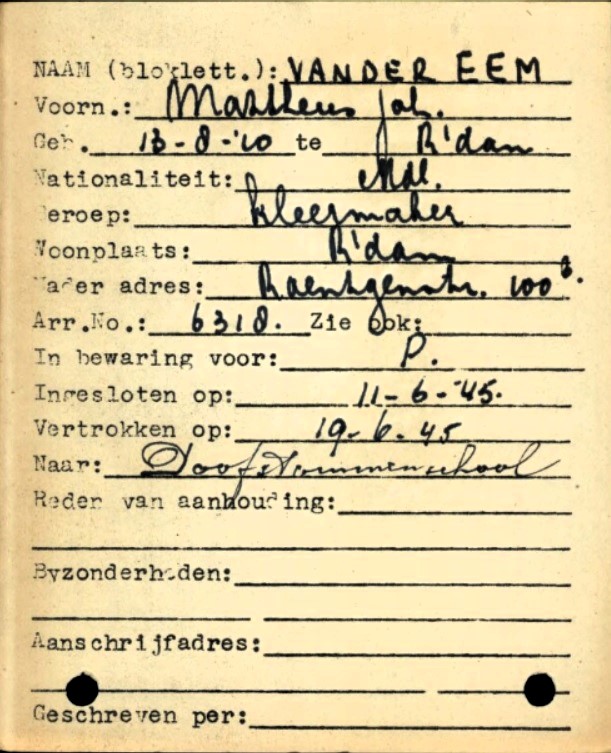 NAAM (bloklett.): VAN DER EEM
Voorn.: Mattheus Joh.
Geb. 13-8-'10 te R'dam
Nationaliteit: Ndl.
Beroep: kleermaker
Woonplaats: R'dam
Nader adres: Raentgenstr. 100
Arr.No.: 6318. Zie ook:
In bewaring voor: P.
Ingesloten op: 11-6-'45.
Vertrokken op: 19-6-45
Naar: Doofstommenschool
Reden van aanhouding:
Byzonderheden:
Aanschrijfadres:
Geschreven per: